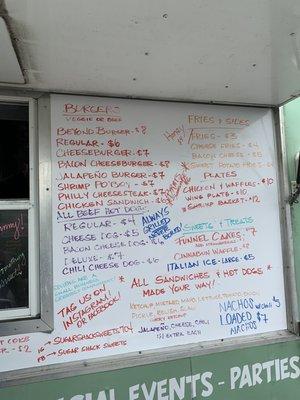 BURGERS
VEGGIE OR BEEF
BEYOND BURGER - $8
REGULAR - $6
CHEESEBURGER - $7
BACON CHEESEBURGER - $8
JALAPEÑO BURGER - $7
SHRIMP PO'BOY - $7
PHILLY CHEESESTEAK - $7
CHICKEN SANDWICH - $6
ALL BEEF HOT DOGS
REGULAR - $4
CHEESE DOG - $5
BACON CHEESE DOG
DELUXE - $7
CHILI CHEESE DOG - $6
ALWAYS
GRILLED
TAG US ON
INSTAGRAM
OR FACEBOOK!
SUGARSHACKSWEETS704
SUGAR SHACK SWEETS
FRIES & SIDES
FRIES - $3
CHEESE FRIES - $4
BACON CHEESE - $5
SWEET POTATO FRIES
PLATES
CHICKEN & WAFFLES - $10
WING PLATE - $10
SHRIMP BASKET - $12
SWEETS & TREATS
FUNNEL CAKES - $7
CINNABUN WAFFLE - $5
ITALIAN ICE - LARGE - $5
* ALL SANDWICHES & HOT DOGS *
MADE YOUR WAY!
KETCHUP, MUSTARD, MAYO, LETTUCE, TOMATO, ONION,
PICKLE, RELISH, SLAW
HONEY MUSTARD
JALAPEÑO, CHEESE, CHILI
NACHOS
LOADED $7
NACHOS
COKE
- $2
CIAL EVENTS - PARTIES